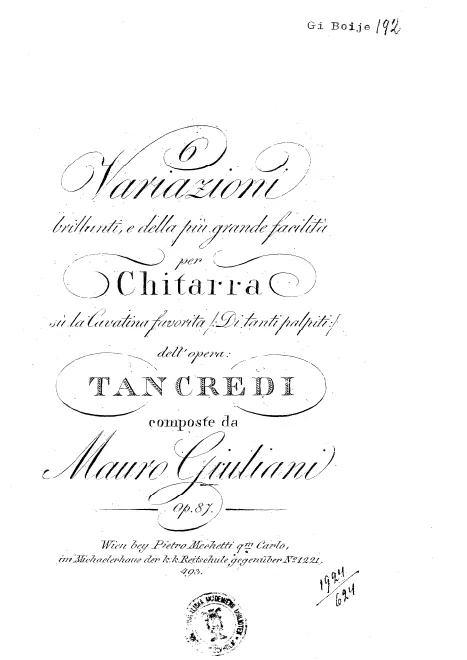 Gi Boije 192
6
Variazioni
brillanti, e della più grande facilità
per
Chitarra
sù la Cavatina favorita /:Di tanti palpiti:/
dell'opera:
TANCREDI
composte da
Mauro Giuliani
Op. 87.
Wien bey Pietro Mechetti qm Carlo,
im Michaelerhaus der k.k. Reitschule gegenüber No 1221.
493.
1924
624